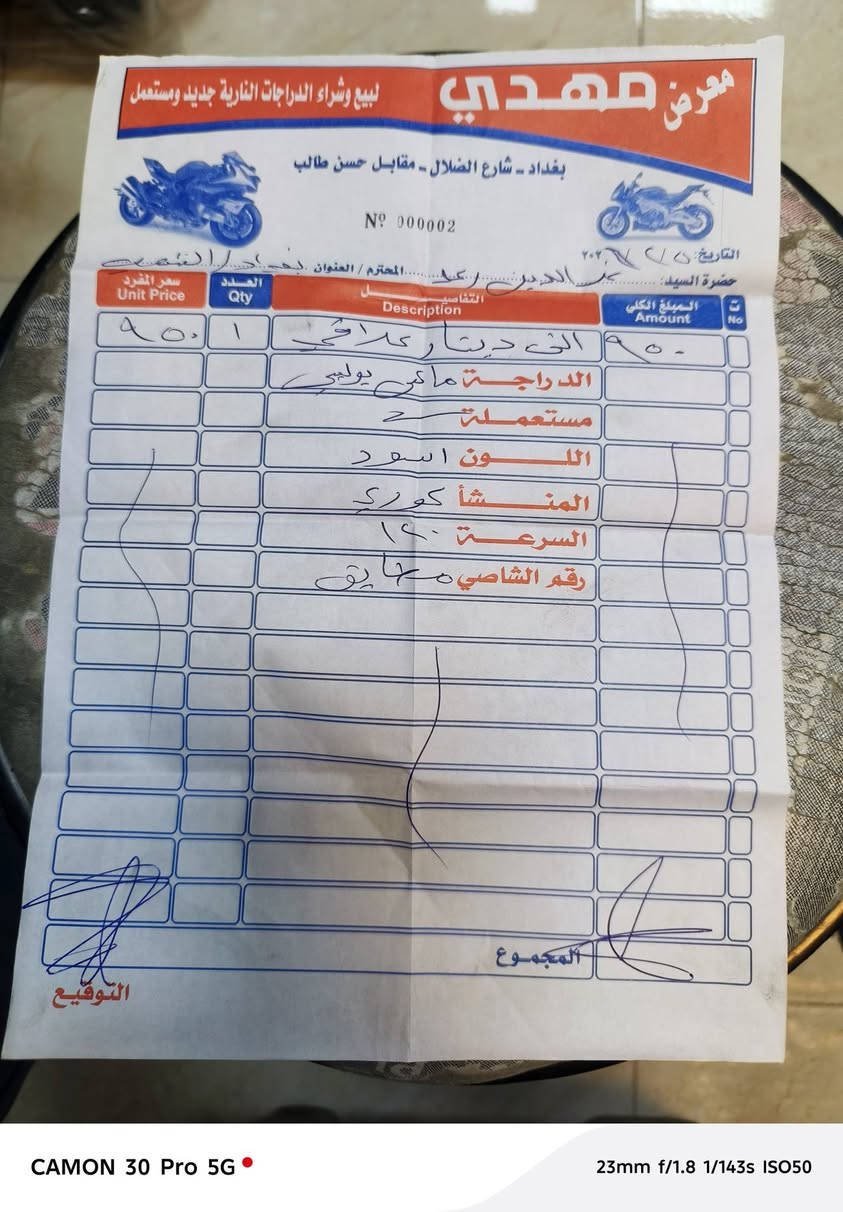 معرض مهدي
لبيع وشراء الدراجات النارية جديد ومستعمل
بغداد - شارع الضلال - مقابل حسن طالب
Nº 000002
التاريخ:
حضرة السيد: المحترم / العنوان بغداد /
ت المبلغ الكلي التفاصيل العدد سعر المفرد
No Amount Description Qty Unit Price
٩٥٠ الف دينار عراقي ١ ٩٥٠
الدراجة
مستعملة
اللون اسود
المنشأ كوري
السرعة ١٢٠
رقم الشاصي
المجموع
التوقيع
CAMON 30 Pro 5G
23mm f/1.8 1/143s ISO50